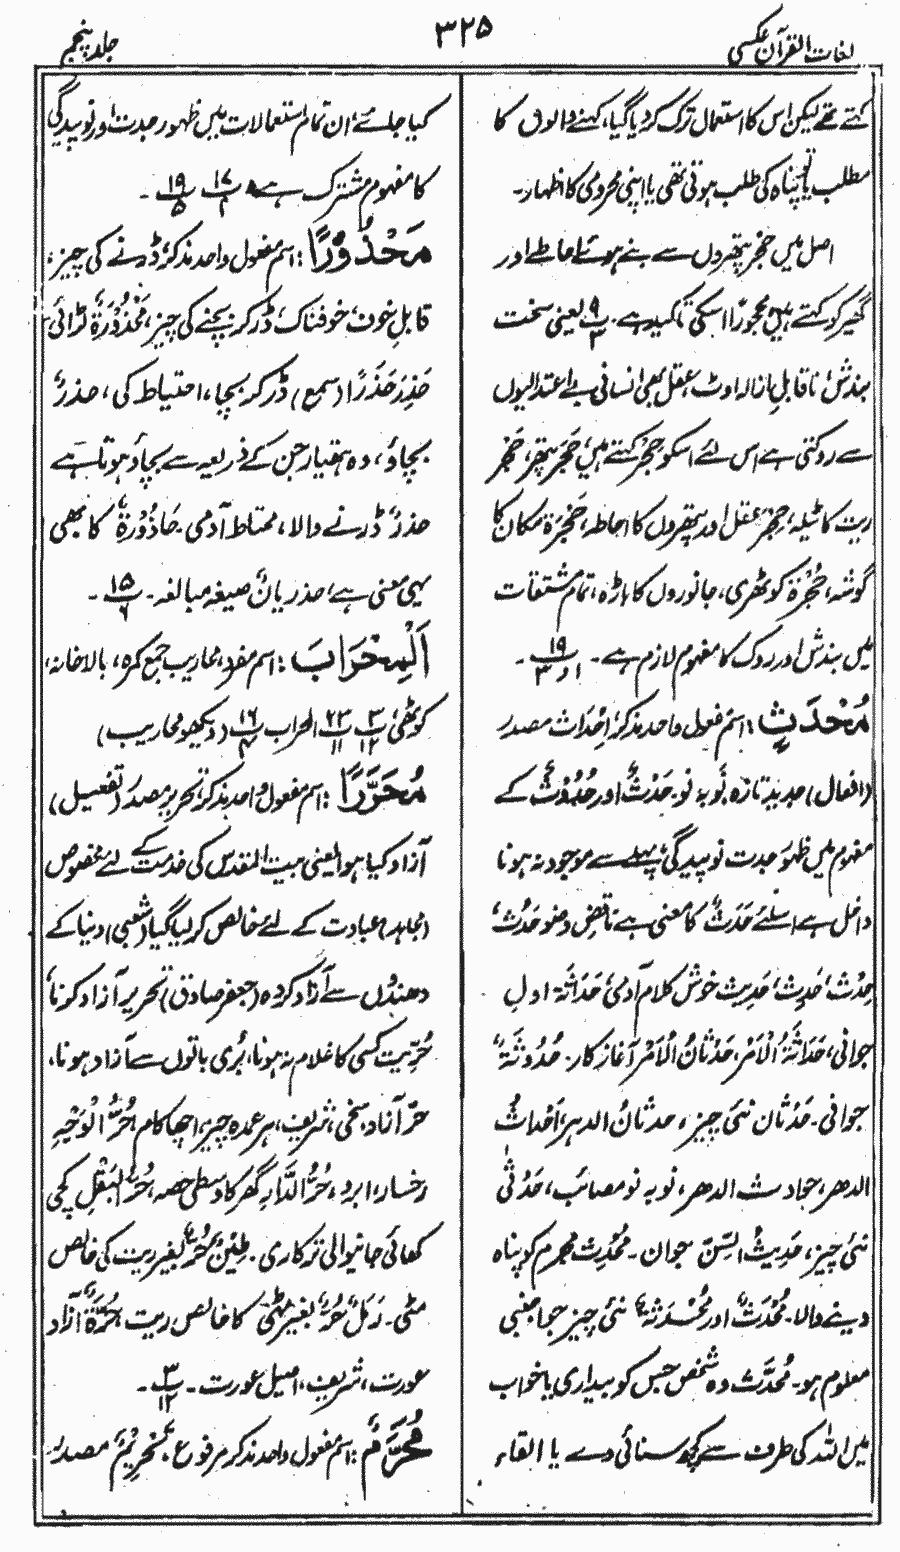 لغات القرآن عکسی
۳۲۵
جلد پنجم
کہتے تھے لیکن اس کا استعمال ترک کردیا گیا، کہنے والوں کا
مطلب یا تو پناہ کی طلب ہوتی تھی یا اپنی محرومی کا اظہار۔
اصل میں حجر پتھروں سے بنے ہوئے احاطے اور
گھیر کو کہتے ہیں محجورًا اسکی تاکید ہے۔ ۹/۳ یعنی سخت
بندش، ناقابلِ ازالہ اوٹ، عقل بھی انسانی بے اعتدالیوں
سے روکتی ہے اس لئے اسکو حِجْر کہتے ہیں، حَجَر پتھر، حَجْر
ریت کا ٹیلہ، حِجر عقل اور پتھروں کا احاطہ، حَجْرَۃ مکان کا
گوشہ، حُجْرَۃ کوٹھری، جانوروں کا باڑہ، تمام مشتقات
میں بندش اور روک کا مفہوم لازم ہے۔ ۱۹/۱ و ۳۔
مُحْدَثٍ: اسم مفعول واحد مذکر، اِحْدَاث مصدر
(افعال) جدید تازہ نَو بہ نَو۔ حَدْثٌ اور حُدُوْثٌ کے
مفہوم میں ظہورِ جدت نو پیدگی، پہلے سے موجود نہ ہونا
داخل ہے اسلئے حَدَثٌ کا معنی ہے ناقضِ وضو حَدُثٌ،
حِدْثٌ، حَدِثٌ، حَدِیث خوش کلام آدمی، حَدَاثَۃ اولِ
جوانی، حَدَاثَۃُ الْاَمْر، حَدْثَانُ الْاَمْر آغازِ کار۔ حَدُوثَۃٌ
جوانی۔ حَدْثَان نئی چیز، حدثانُ الدہر، اَحْدَاثُ
الدھر، حوادث الدھر، نو بہ نو مصائب، حَدْثٰی
نئی چیز، حَدِیثُ السِّنّ جوان۔ مُحْدِث مجرم کو پناہ
دینے والا۔ مُحْدَثٌ اور مُحْدَثَۃٌ نئی چیز جو اجنبی
معلوم ہو۔ مُحَدَّث وہ شخص جس کو بیداری یا خواب
میں اللہ کی طرف سے کچھ سنائی دے یا القاء
کیا جائے، ان تمام استعمالات میں ظہور جدت اور نو پیدگی
کا مفہوم مشترک ہے، ۱۷/۱ ۱۹/۵۔
مَحْذُوْرًا: اسم مفعول واحد مذکر، ڈرنے کی چیز،
قابلِ خوف، خوفناک، ڈر کر بچنے کی چیز، مَحْذُوْرَۃٌ لڑائی
حَذِرَ حَذَرًا (سمع) ڈر کر بچا، احتیاط کی، حذرٌ
بچاؤ، وہ ہتھیار جن کے ذریعہ سے بچاؤ ہوتا ہے
حذرٌ ڈرنے والا، محتاط آدمی۔ حَاذُوْرَۃٌ کا بھی
یہی معنی ہے، حذریانٌ صیغہ مبالغہ۔ ۱۵/۶۔
اَلْمِحْرَابَ: اسم مفرد، محاریب جمع کمرہ، بالاخانہ،
کوٹھی، ۳/۱۲ ۲۳/۱۱ المحراب ۱۶/۴ (دیکھو محاریب)
مُحَرَّرًا: اسم مفعول واحد مذکر، تحریر مصدر (تفعیل)
آزاد کیا ہوا یعنی بیت المقدس کی خدمت کے لئے مخصوص
(مجاہد) عبادت کے لئے خالص کرلیا گیا (شعبی) دنیا کے
دھندوں سے آزاد کردہ (جعفر صادق) تحریر آزاد کرنا،
حُرِّیت کسی کا غلام نہ ہونا، بُری باتوں سے آزاد ہونا،
حرّ آزاد، سخی، شریف، ہر عمدہ چیز، اچھا کام، حُرُّ الْوَجْہِ
رخسار، ابرو، حُرُّ الدَّارِ گھر کا وسطی حصہ، حُرُّ الْبَقْلِ کچی
کھائی جانیوالی ترکاری۔ طِیْنٌ حُرٌّ بغیر ریت کی خالص
مٹی۔ رَمَلٌ حُرٌّ، بغیر مٹی کا خالص ریت، حُرَّۃٌ آزاد
عورت، شریف، اصیل عورت۔ ۳/۱۲۔
مُحَرَّمٌ: اسم مفعول واحد مذکر مرفوع، تَحْرِیْمٌ مصدر،